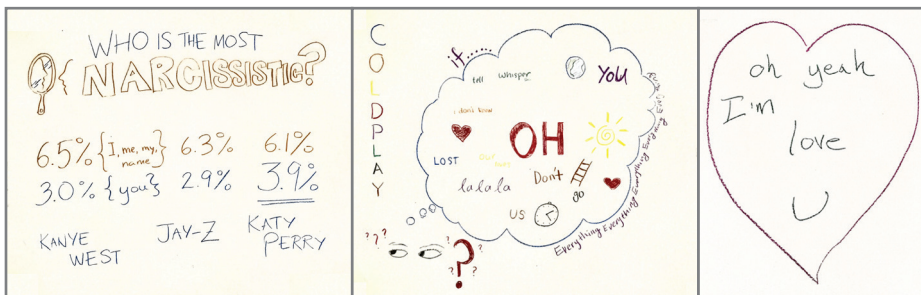 WHO IS THE MOST
NARCISSISTIC?
6.5% {I, me, my, name} 6.3% 6.1%
3.0% {you} 2.9% 3.9%
KANYE WEST JAY-Z KATY PERRY
COLDPLAY
if......
tell whisper YOU
i don't know
OH
LOST
Don't
lalalala
go
US
Everything Everything Everything Everything
? ? ? ? ? ? ?
oh yeah
I'm
love
U